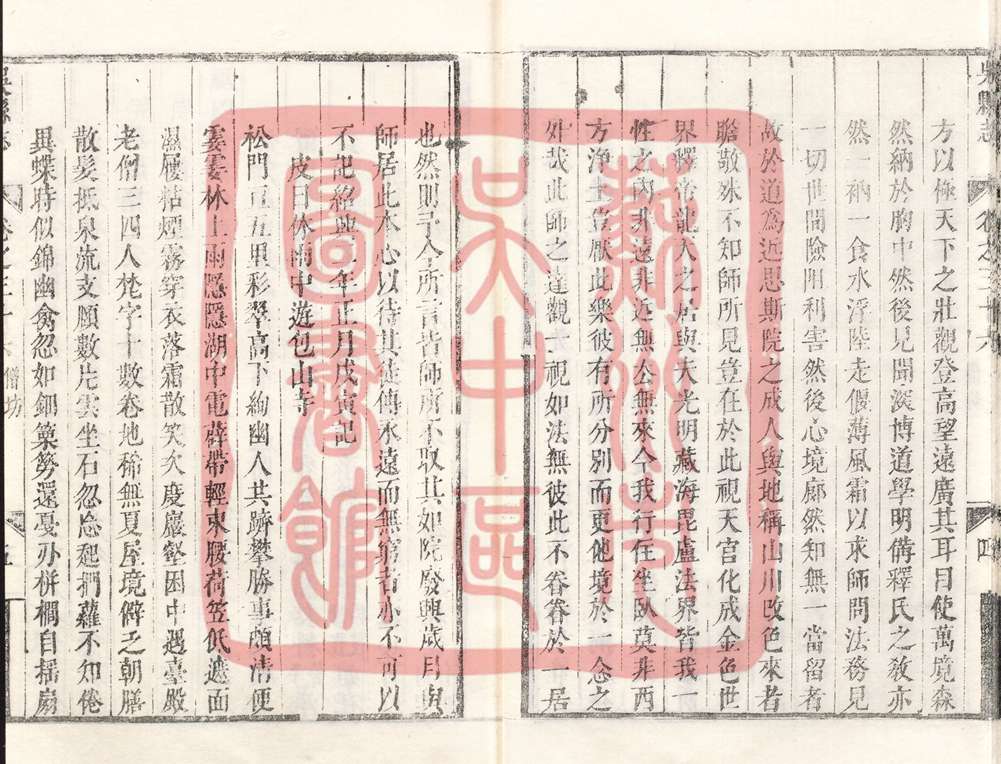 吳縣志
卷之三十六
四
方以極天下之壯觀登高望遠廣其耳目使萬境森
然納於胸中然後見聞淡博道學明備釋氏之教亦
然一衲一食水浮陸走偃薄風霜以求師問法務見
一切世間險阻利害然後心境廓然知無一當留者
故於道為近思斯院之成人與地稱山川改色來者
瞻敬殊不知師所見豈在於此視天宮化成金色世
界釋帝龍天之居與大光明藏海毘盧法界皆我一
性之內非遠非近無公無來今我行住坐臥莫非西
方淨土豈厭此樂彼有所分別而更他境於一念之
外哉此師之達觀一視如法無彼此不眷眷於一居
也然則予今所言皆師所不取其如院廢興歲月與
師居此本心以待其徒傳永遠而無窮者亦不可以
不記紹興二年正月戊寅記
皮日休雨中遊包山寺
松門亘五里彩翠高下絢幽人共躋攀勝事頗清便
霎霎林上雨隱隱湖中電薜帶輕束腰荷笠低遮面
濕屨粘煙霧穿衣落霜散笑次度巖壑困中遇臺殿
老僧三四人梵字十數卷地稀無夏屋境僻乏朝膳
散髮抵泉流支頤數片雲坐石忽忘起捫蘿不知倦
異蝶時似錦幽禽忽如鈿篥簩還戛刃栟櫚自搖扇
吳縣志
卷之三十六
僧坊
五
蘇州市
吳中區
圖書館